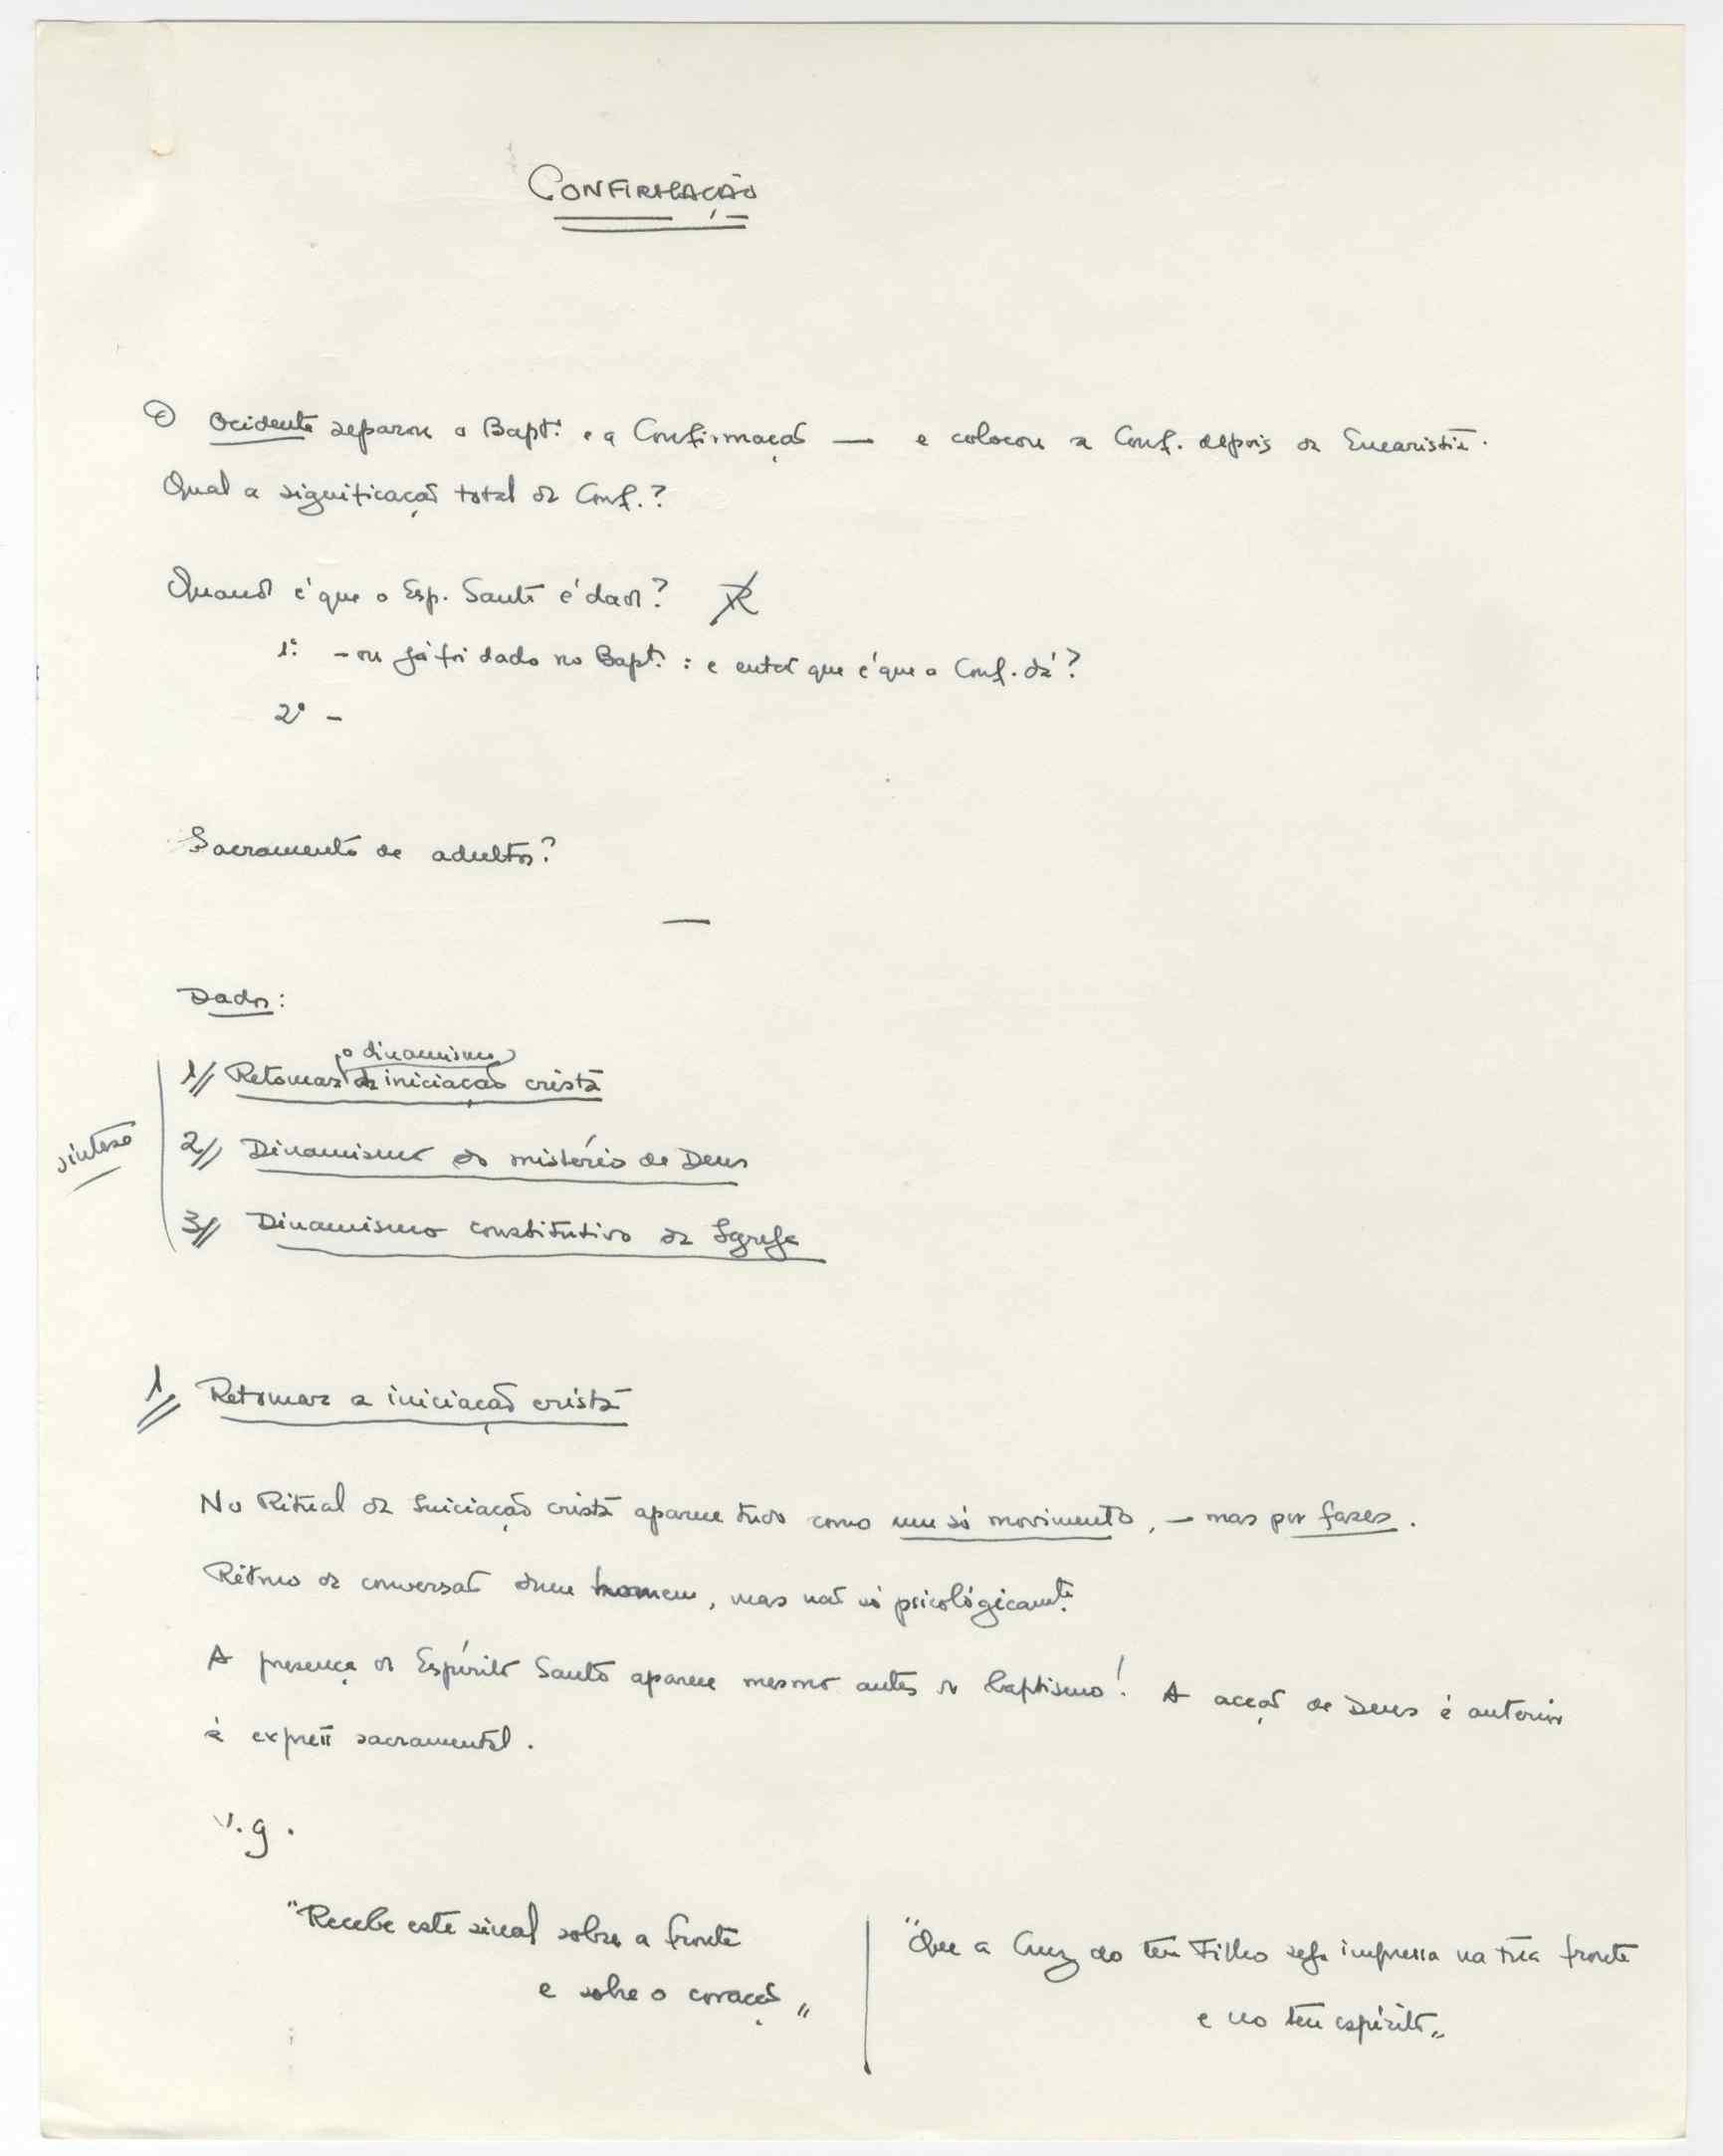 CONFIRMAÇÃO
O Ocidente separou o Bapt.º e a Confirmação — e colocou a Conf. depois da Eucaristia.
Qual a significação total da Conf.?
Quando é que o Esp. Santo é dado?
1.º - ou já foi dado no Bapt.º : e então que é que a Conf. dá?
2º -
Sacramento de adultos?
—
Dados:
o dinamismo
1// Retomar da iniciação cristã
síntese
2// Dinamismo do mistério de Deus
3// Dinamismo constitutivo da Igreja
1// Retomar a iniciação cristã
No Ritual da Iniciação cristã aparece tudo como um só movimento, — mas por fases.
Ritmo da conversão dum homem, mas não só psicológicamte.
A presença do Espírito Santo aparece mesmo antes do baptismo! A acção de Deus é anterior
à expressão sacramental.
v.g.
"Recebe este sinal sobre a fronte
e sobre o coração"
"Que a Cruz do teu Filho seja impressa na tua fronte
e no teu espírito"